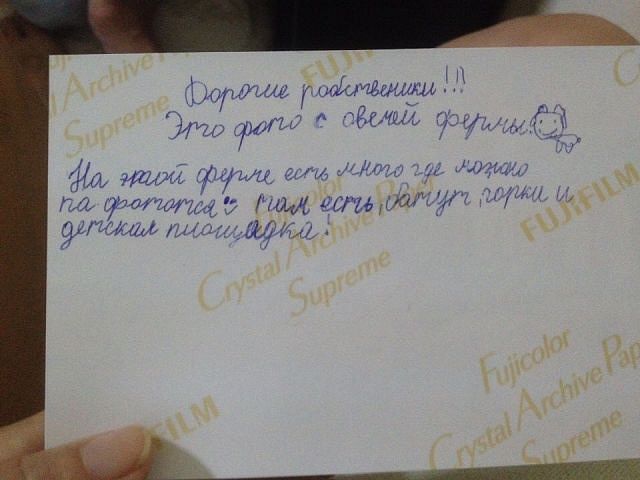 Дорогие родственики!!!
Это фото с овечей фермы!
На этой ферме есть много где можно
па фототся там есть, батут, горки и
детская площадка!
Fujicolor
Crystal Archive Paper
Supreme
FUJIFILM
Fujicolor
Crystal Archive Paper
Supreme
FUJIFILM
Fujicolor
Crystal Archive Pape
Supreme